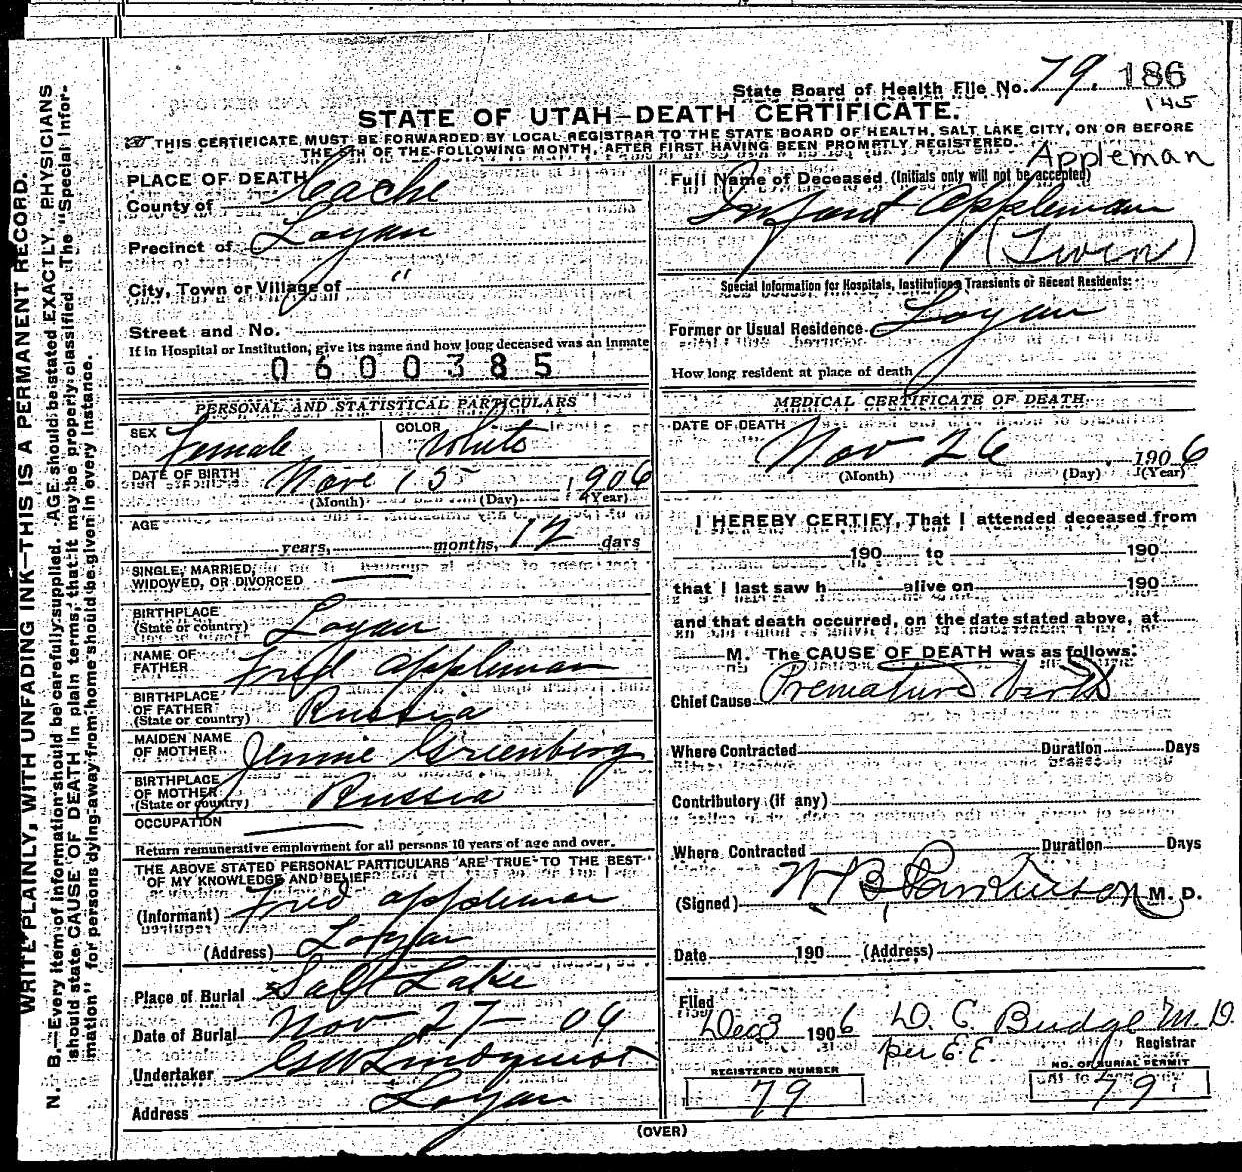 State Board of Health File No. 79. 186
145
STATE OF UTAH—DEATH CERTIFICATE.
THIS CERTIFICATE MUST BE FORWARDED BY LOCAL REGISTRAR TO THE STATE BOARD OF HEALTH, SALT LAKE CITY, ON OR BEFORE
THE 5TH OF THE FOLLOWING MONTH, AFTER FIRST HAVING BEEN PROMPTLY REGISTERED.
Appleman
PLACE OF DEATH
County of Cache
Precinct of Logan
City, Town or Village of "
Street and No.
If in Hospital or Institution, give its name and how long deceased was an Inmate
0600385
Full Name of Deceased (Initials only will not be accepted)
Infant Appleman
(Twin)
Special Information for Hospitals, Institutions, Transients or Recent Residents:
Former or Usual Residence Logan
How long resident at place of death
PERSONAL AND STATISTICAL PARTICULARS
SEX Female COLOR White
DATE OF BIRTH Nov 15 1906
(Month) (Day) (Year)
AGE
years, months, 12 days
SINGLE, MARRIED,
WIDOWED, OR DIVORCED
BIRTHPLACE
(State or country) Logan
NAME OF
FATHER Fred Appleman
BIRTHPLACE
OF FATHER
(State or country) Russia
MAIDEN NAME
OF MOTHER Jennie Greenberg
BIRTHPLACE
OF MOTHER
(State or country) Russia
OCCUPATION
Return remunerative employment for all persons 10 years of age and over.
THE ABOVE STATED PERSONAL PARTICULARS ARE TRUE TO THE BEST
OF MY KNOWLEDGE AND BELIEF
(Informant) Fred Appleman
(Address) Logan
Place of Burial Salt Lake
Date of Burial Nov 27- 06
Undertaker Lindquist
Address Logan
MEDICAL CERTIFICATE OF DEATH
DATE OF DEATH
Nov 26 1906
(Month) (Day) (Year)
I HEREBY CERTIFY, That I attended deceased from
190 to 190
that I last saw h alive on 190
and that death occurred, on the date stated above, at
M. The CAUSE OF DEATH was as follows:
Chief Cause Premature birth
Where Contracted Duration Days
Contributory (if any)
Where Contracted Duration Days
(Signed) W. B. Parkinson M. D.
Date 190 (Address)
Filed
Dec 3 1906 D. C. Budge M. D.
per E. E. Registrar
REGISTERED NUMBER
79
NO. OF BURIAL PERMIT
79
(OVER)
WRITE PLAINLY, WITH UNFADING INK—THIS IS A PERMANENT RECORD.
N. B.—Every item of information should be carefully supplied. AGE should be stated EXACTLY. PHYSICIANS
should state CAUSE OF DEATH in plain terms, that it may be properly classified. The "Special Infor-
mation" for persons dying away from home should be given in every instance.